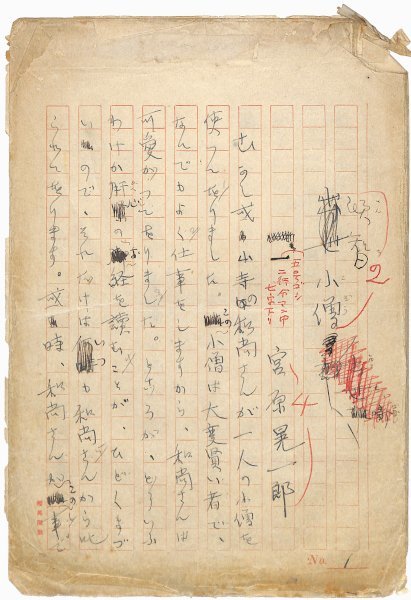 頓智小僧
宮原晃一郎
一
むかし或る山寺の和尚さんが一人の小僧を
使つてをりました。この小僧は大変賢い者で、
なんでもよく仕事をしますから、和尚さんは
可愛がつてをりました。ところが、どういふ
わけか肝心のお経を読むことが、ひどくまづ
いので、それだけは何いつも和尚さんから叱
られてをります。或る時、和尚さん
2
4
No. 1